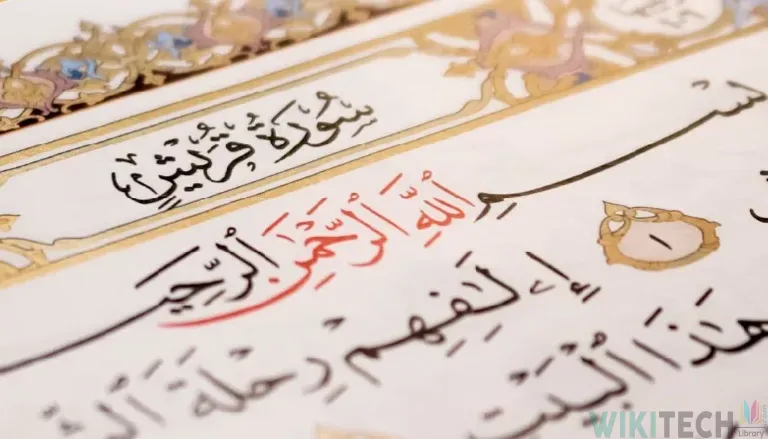 سُورَةُ قُرَيْشٍ
بسْمِ ٱللَّهِ ٱلرَّحْمَٰنِ ٱلرَّحِيـ
١ إِۦلَٰفِهِمْ رِحْلَةَ
هَٰذَا ٱلْبَيْتِ
WIKITECH
Library